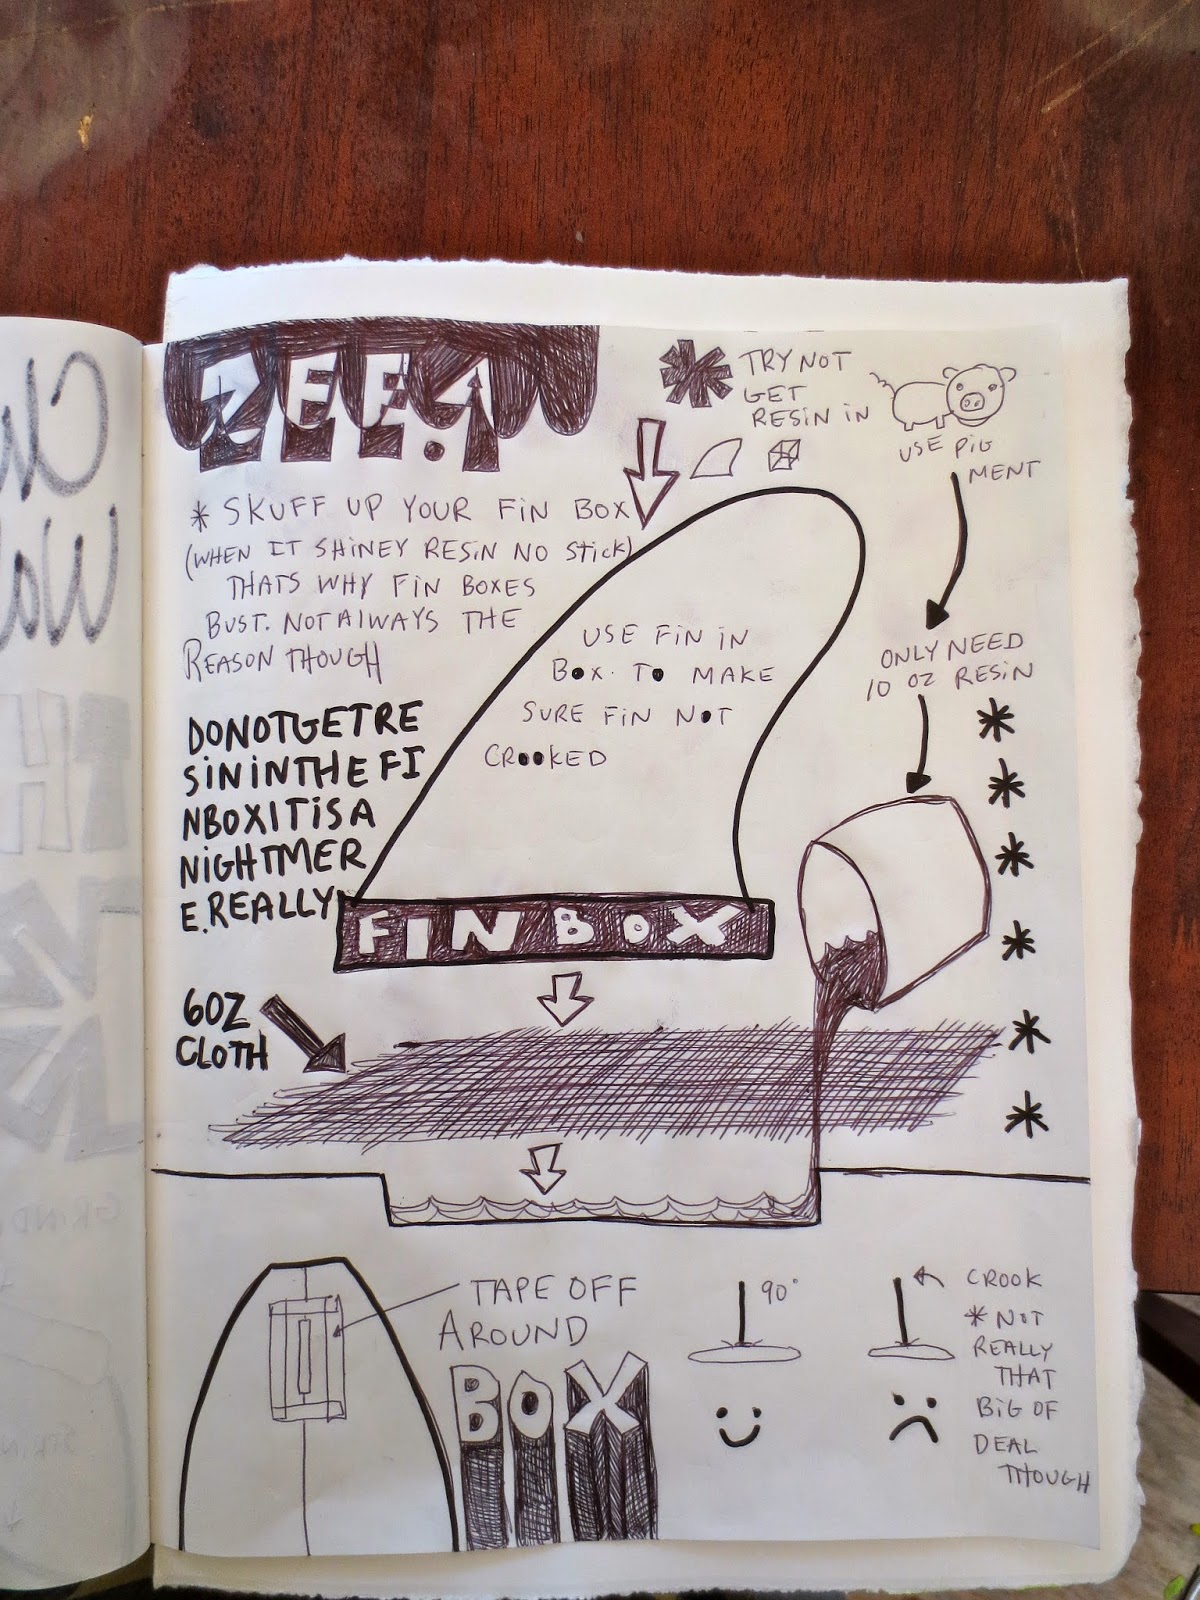 * TRY NOT
GET
RESIN IN
USE PIG
MENT
* SKUFF UP YOUR FIN BOX
(WHEN IT SHINEY RESIN NO STICK)
THATS WHY FIN BOXES
BUST. NOT ALWAYS THE
REASON THOUGH
USE FIN IN
BOX. TO MAKE
SURE FIN NOT
CROOKED
ONLY NEED
10 OZ RESIN
DONOTGETRE
SININTHEFI
NBOXITISA
NIGHTMER
E.REALLY
FIN BOX
6OZ
CLOTH
TAPE OFF
AROUND
BOX
90°
CROOK
*NOT
REALLY
THAT
BIG OF
DEAL
THOUGH